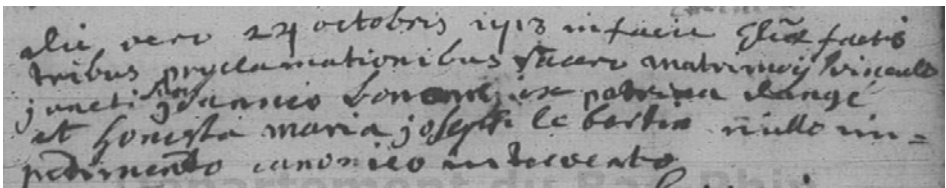 die vero 24 octobris 1713 in facie Eccliæ factis
tribus proclamationibus sacro matrimonij vinculo
juncti sunt joannes ex patrina
et honesta maria joseph le nullo im=
pedimento canonico intervento
Département du Bas-Rhin